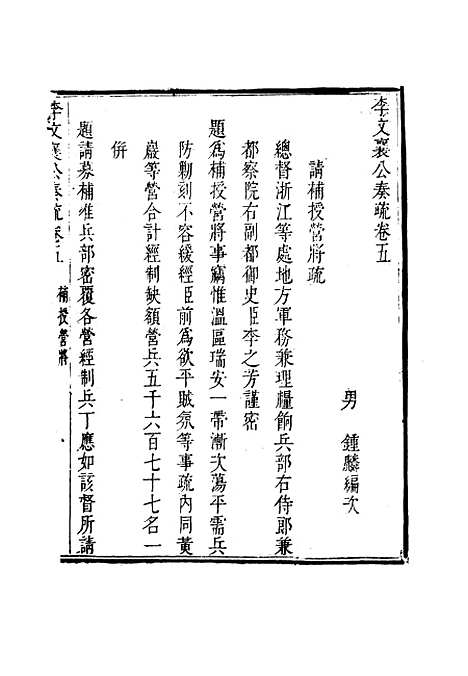 李文襄公奏疏卷五
男　鍾麟編次
請補授營將疏
總督浙江等處地方軍務兼理糧餉兵部右侍郎兼
都察院右副都御史臣李之芳謹密
題爲補授營將事竊惟溫區瑞安一帶漸次蕩平需兵
防勦刻不容緩經臣前爲欲平賊氛等事疏內同黃
巖等營合計經制缺額營兵五千六百七十七名一
併
題請募補准兵部密覆各營經制兵丁應如該督所請
李文襄公奏疏卷五
補授營將